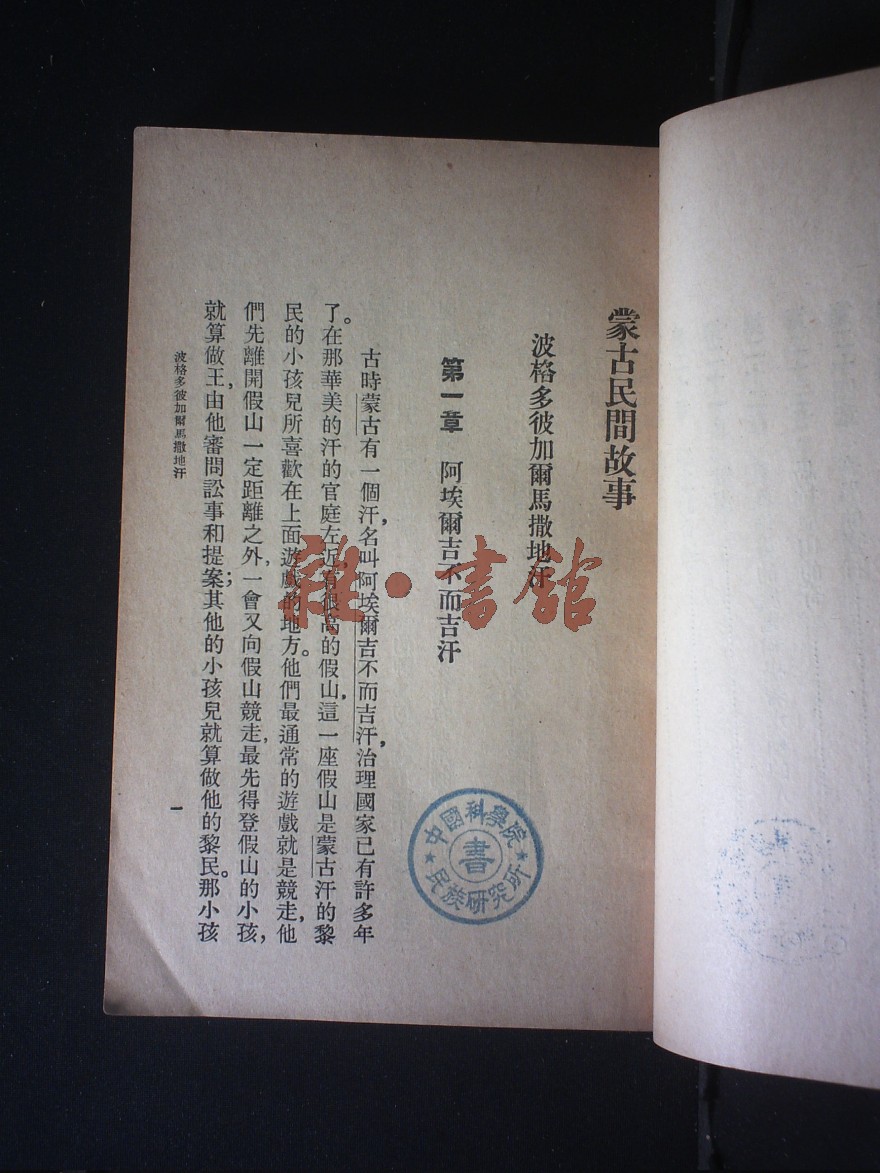 蒙古民間故事
波格多彼加爾馬撒地汗
第一章 阿埃爾吉不而吉汗
古時蒙古有一個汗，名叫阿埃爾吉不而吉汗，治理國家已有許多年
了。在那華美的汗的官庭左近，有很高的假山，這一座假山是蒙古汗的黎
民的小孩兒所喜歡在上面遊戲的地方。他們最通常的遊戲就是競走，他
們先離開假山一定距離之外，一會又向假山競走，最先得登假山的小孩，
就算做王，由他審問訟事和提案；其他的小孩兒就算做他的黎民。那小孩
波格多彼加爾馬撒地汗
一
中國科學院
書
民族研究所
雜·書館